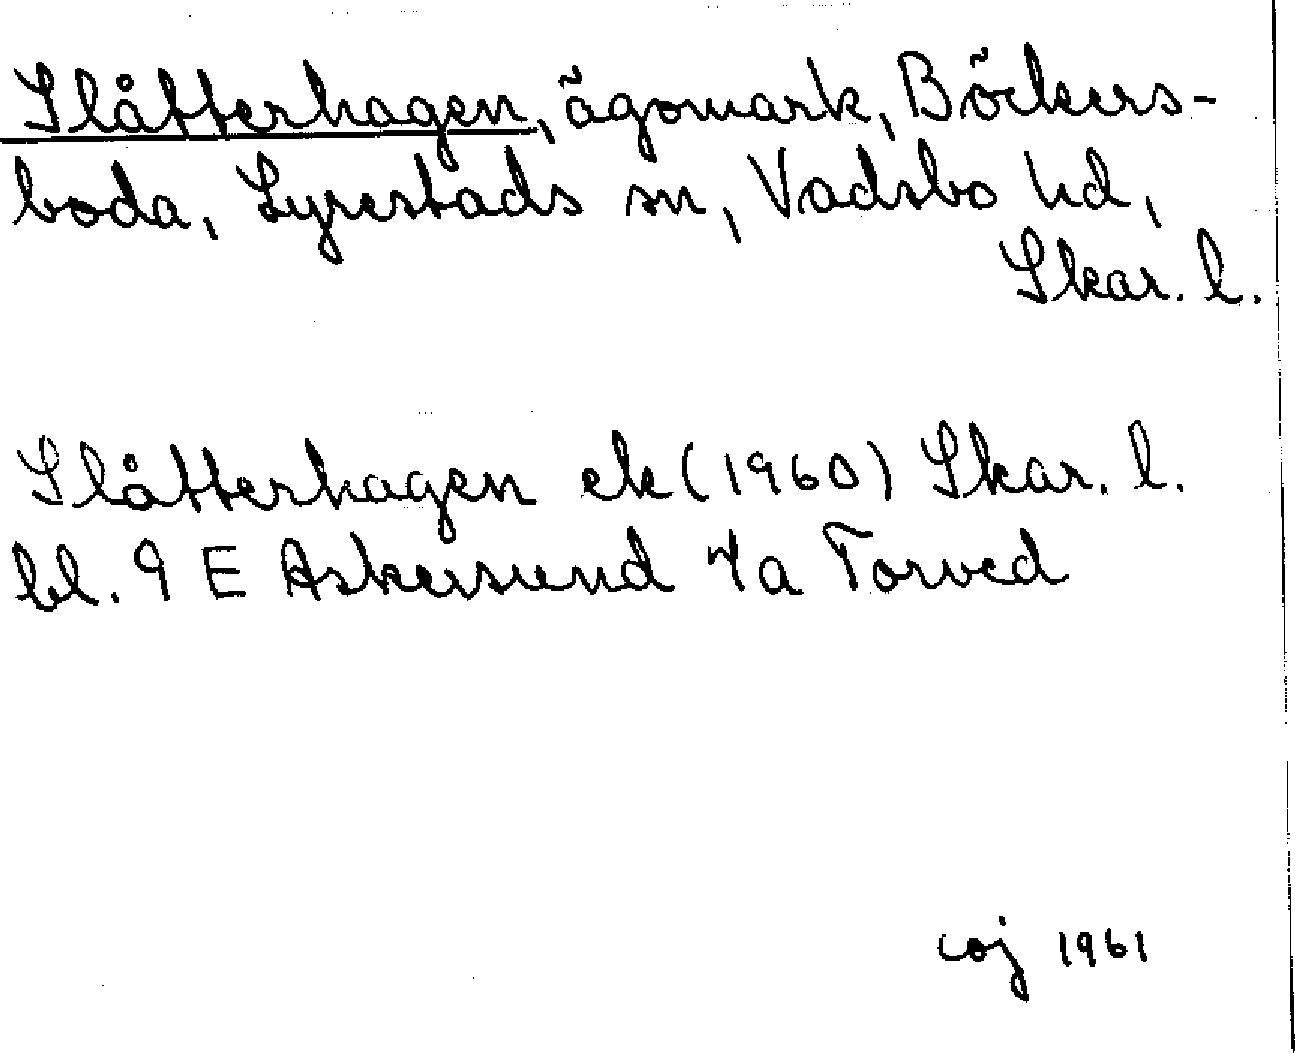 Slåtterhagen, ägomark, Böckers-
boda, Lyrestads sn, Vadsbo hd,
Skar. l.
Slåtterhagen ek (1960) Skar. l.
bl. 9 E Askersund 7a Torved
coj 1961